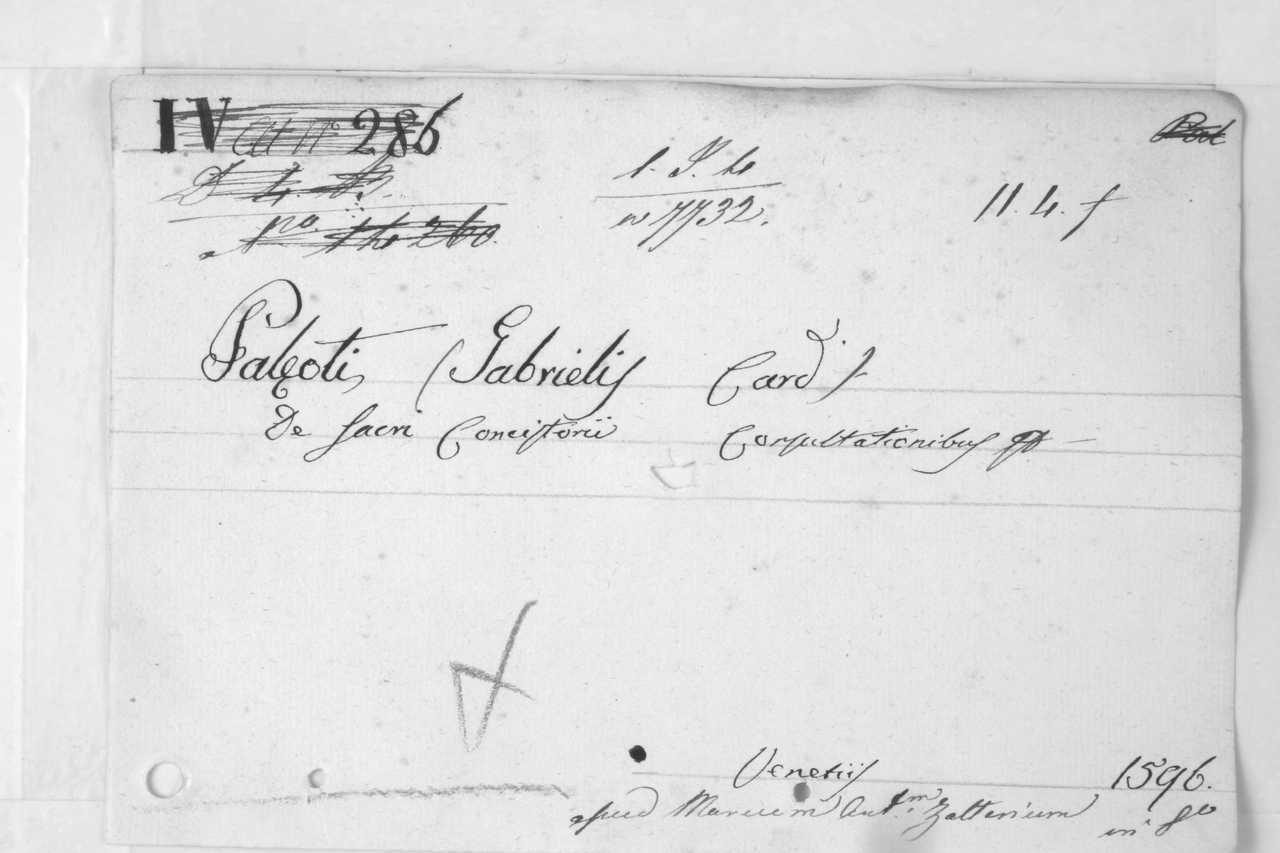 IV 286
l. P. 4
n 7732.
11. 4. f
Paleoti (Gabrielis Card.
De Sacri Concistorii Consultationibus
Venetiis 1596.
apud Marcum Antm. Zalterium in 8o